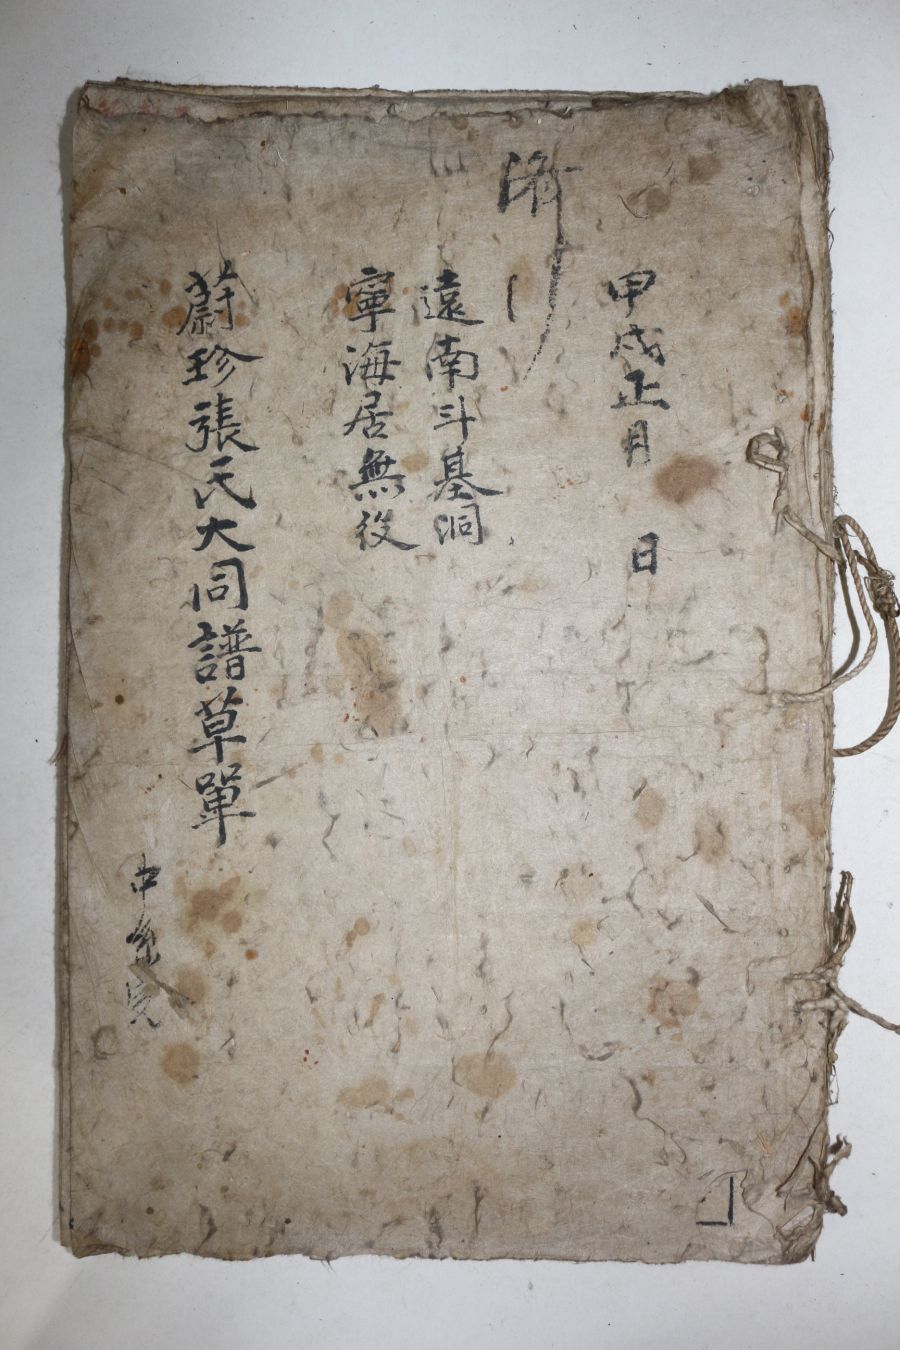 甲戌正月 日
遠南斗基洞
寧海居無役
蔚珍張氏大同譜草單